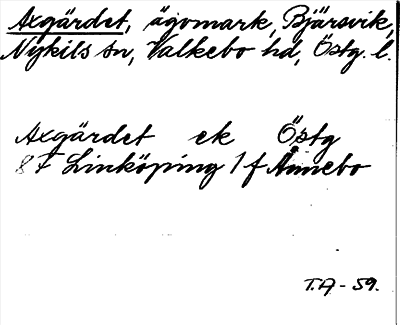 Axgärdet, ägomark, Bjärsvik,
Nykils sn, Valkebo hd, Östg. l.
Axgärdet ek Östg
8 f Linköping 1 f Ånnebo
T.A - 59.